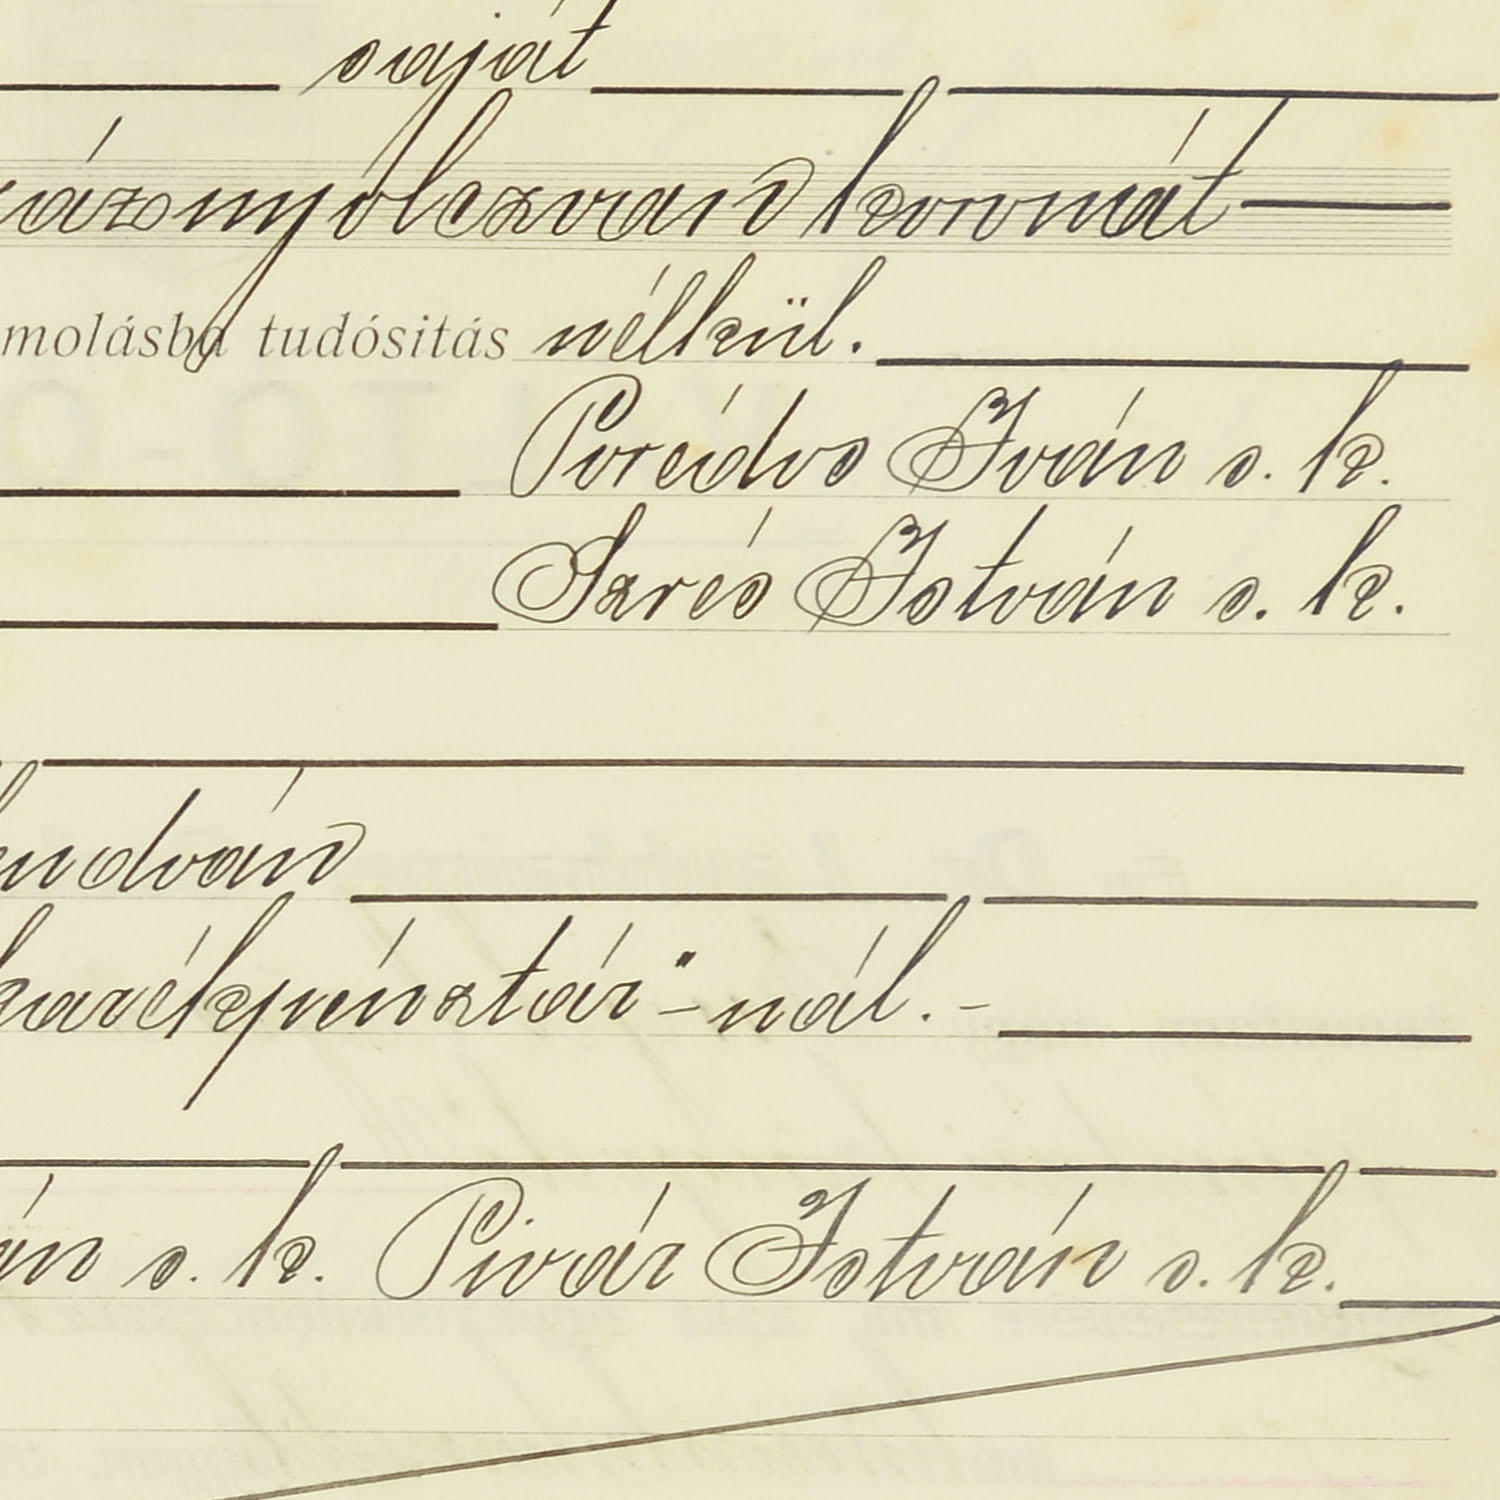 saját
száznyólczvan koronát
molásba tudósitás nélkül.
Poredos Iván s. k.
Szrés István s. k.
endván
karékpénztár"-nál.-
án s. k. Pivár István s. k.